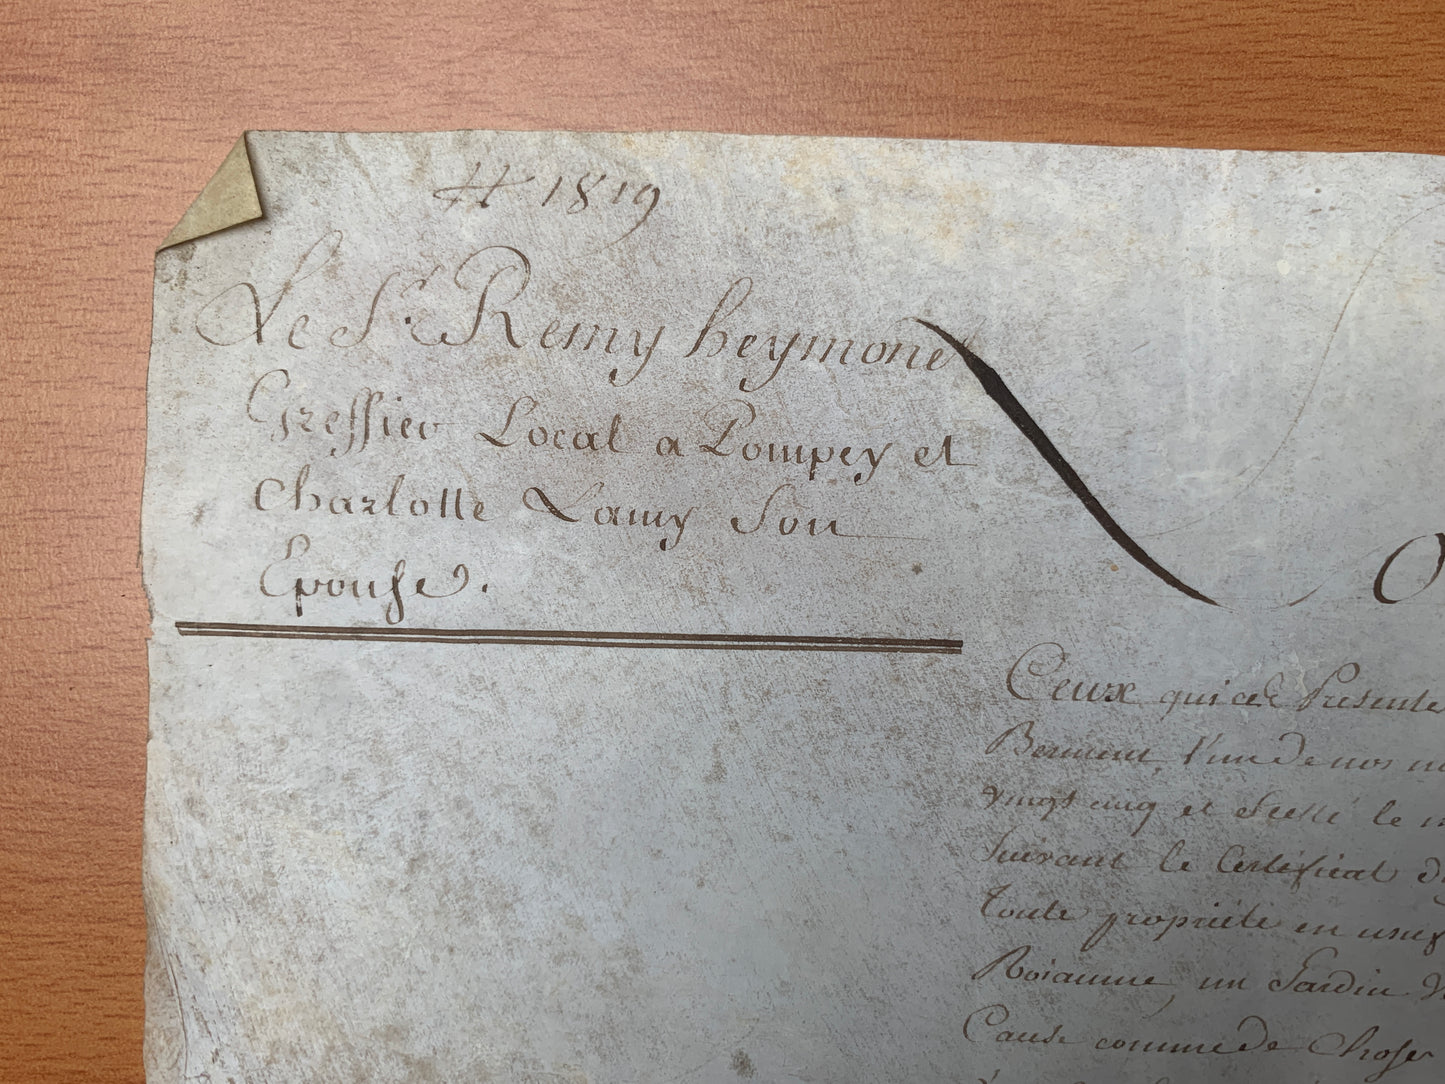 # 1819
Le Sr. Remy heymonet
Greffier Local a Pompey et
Charlotte Lamy Son
Epouse.
O
Ceux qui ces Presente
Bermont, l'un de nos
vingt cinq et Scellé le
Suivant le Certificat
toute propriété en
Roiaume, un Jardin
Cause comme de Choses